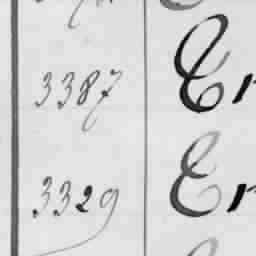 3387 Er
3329 Er